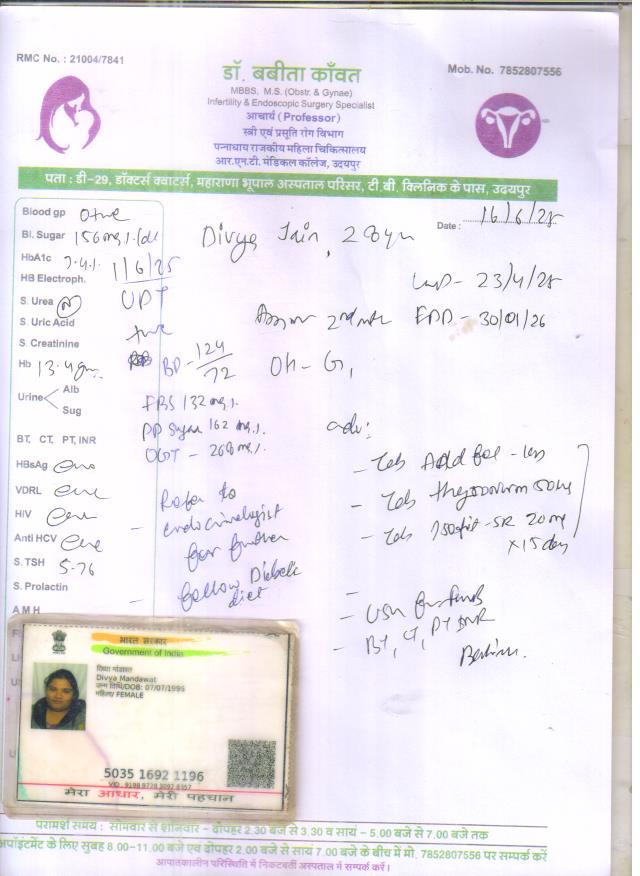 RMC No. : 21004/7841
Mob. No. 7852807556
डॉ. बबीता काँवत
MBBS, M.S. (Obstr. & Gynae)
Infertility & Endoscopic Surgery Specialist
आचार्य (Professor)
स्त्री एवं प्रसूति रोग विभाग
पन्नाधाय राजकीय महिला चिकित्सालय
आर.एन.टी. मेडिकल कॉलेज, उदयपुर
पता : डी-29, डॉक्टर्स क्वाटर्स, महाराणा भूपाल अस्पताल परिसर, टी.बी. क्लिनिक के पास, उदयपुर
Date : 16/6/25
Blood gp O+ve
Divya Jain, 28yr
Bl. Sugar 156 mg/dl
HbA1c 7.4%
1/6/25
LMP - 23/4/25
HB Electroph.
UPT
+ve
S. Urea N
EDD - 30/01/26
S. Uric Acid
S. Creatinine
BP - 124/72
Oh - G1
Hb 13.4 gm
Urine Alb
Sug
FBS 132 mg%
PP Sugar 162 mg%
OGT - 268 mg%
adv:
BT, CT, PT, INR
HBsAg
VDRL
HIV
Anti HCV
S. TSH 5.76
S. Prolactin
A M H
Refer to
endocrinologist
for further
- follow Diabetic
diet
- Tab
- Tab Thyronorm 50
- Tab SR 20 mg
x 15 day
- USG
- BT, CT, PT INR
भारत सरकार
Government of India
दिव्या मांडावत
Divya Mandawat
जन्म तिथि/DOB: 07/07/1995
महिला/ FEMALE
5035 1692 1196
मेरा आधार, मेरी पहचान
परामर्श समय : सोमवार से शनिवार - दोपहर 2.30 बजे से 3.30 व सायं - 5.00 बजे से 7.00 बजे तक
अपॉइंटमेंट के लिए सुबह 8.00-11.00 बजे एवं दोपहर 2.00 से सायं 7.00 बजे के बीच में मो. 7852807556 पर सम्पर्क करें
आपातकालीन परिस्थिति में निकटवर्ती अस्पताल में सम्पर्क करें।